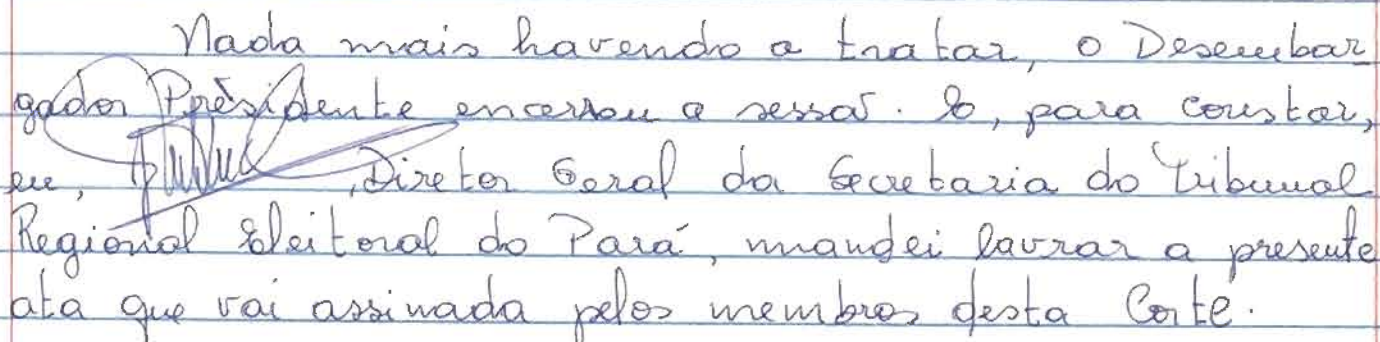 Nada mais havendo a tratar, o Desembar
gador Presidente encerrou a sessão. E, para constar,
eu, , Diretor Geral da Secretaria do Tribunal
Regional Eleitoral do Pará, mandei lavrar a presente
ata que vai assinada pelos membros desta Corte.